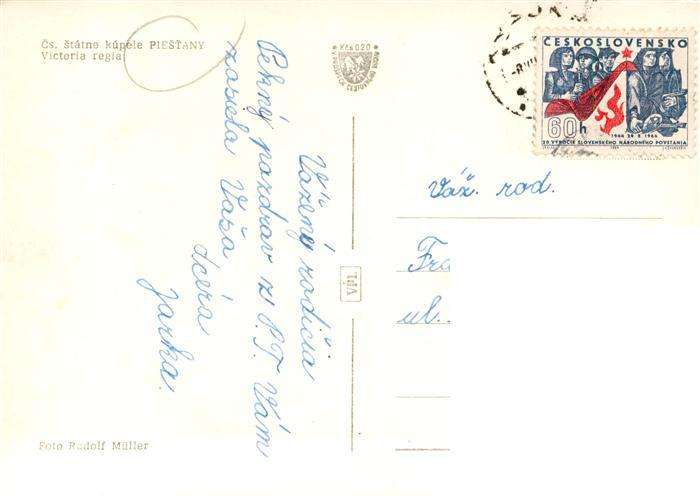 Čs. štátne kúpele PIEŠŤANY
Victoria regia
Kčs 0,20
Vážený rodičia
Pekný pozdrav z P.T. Vám
zasiela Vaša
dcéra
Jarka.
ČESKOSLOVENSKO
60h
1944 29.8.1964
20. VÝROČIE SLOVENSKÉHO NÁRODNÉHO POVSTANIA
Váž. rod.
Fra
ul.
Foto Rudolf Müller